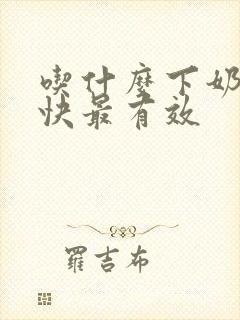 喫什麼下奶
快最有效
羅吉布